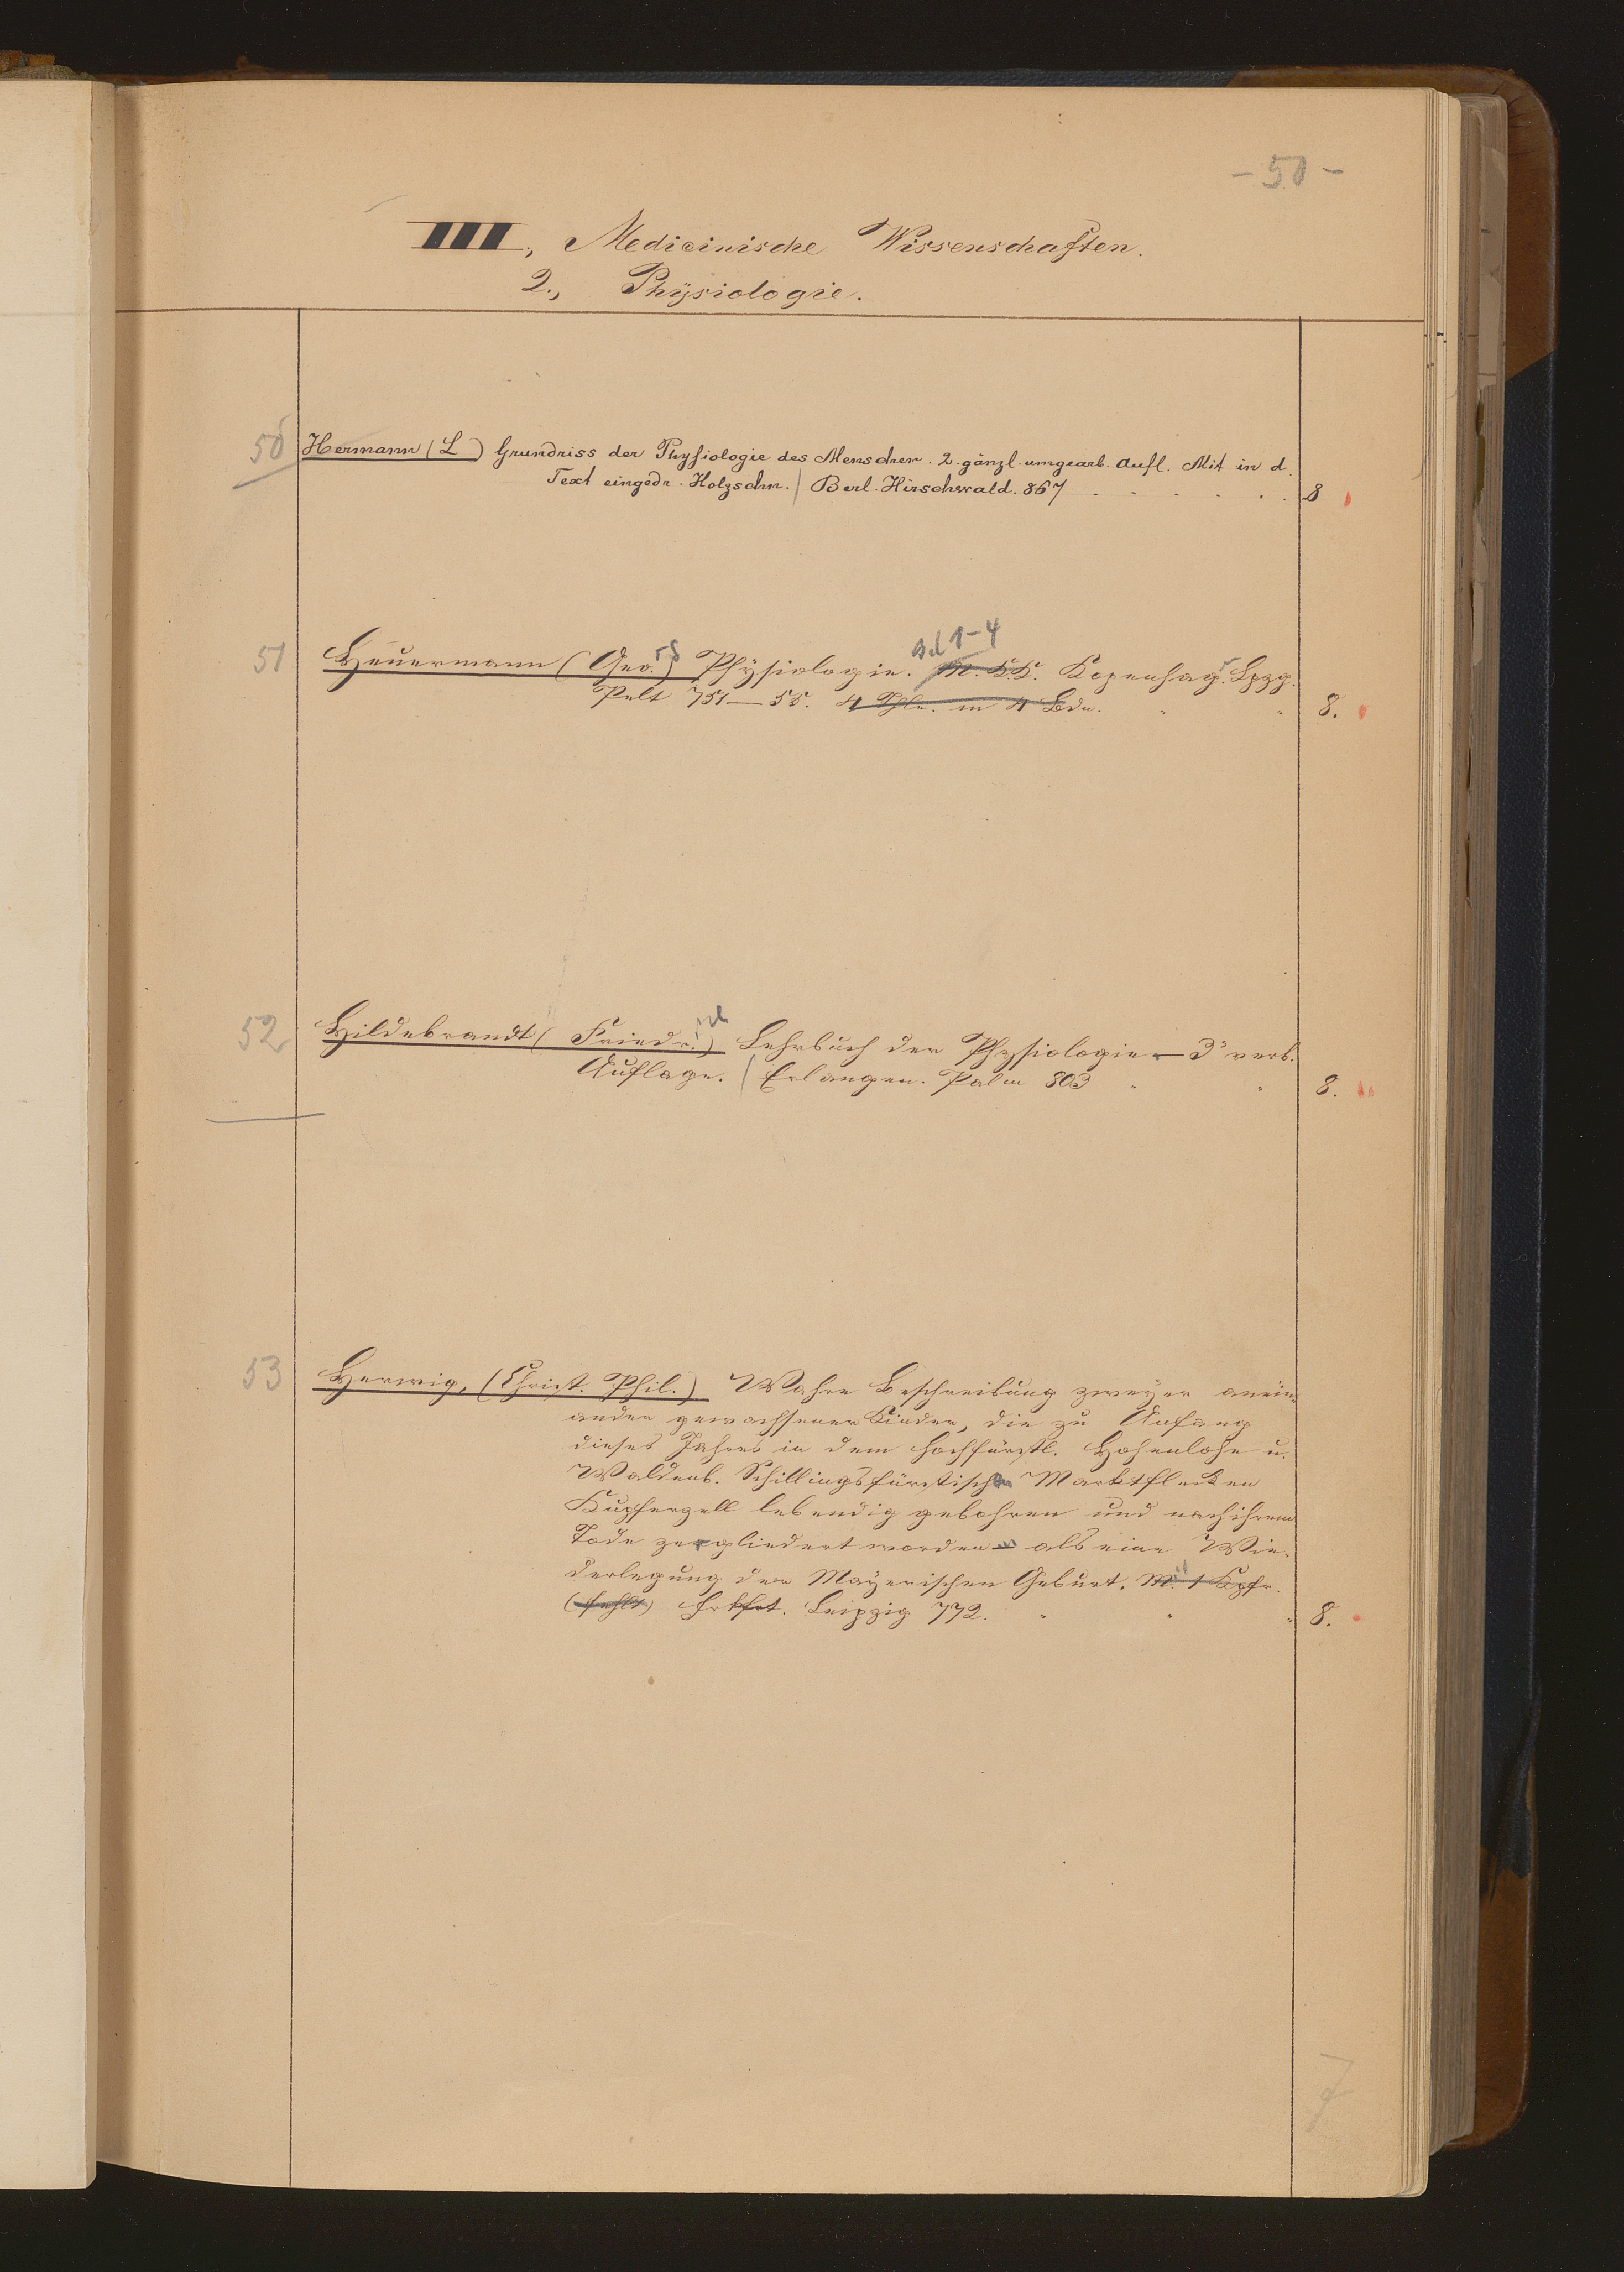 - 50 -
III., Medicinische Wissenschaften.
2., Physiologie.
50 Hermann (L) Grundriss der Physiologie des Menschen. 2. gänzl. umgearb. Aufl. Mit in d.
Text eingedr. Holzschn. / Berl. Hirschwald. 867 . . . . . . 8
Bd 1-4
51 Heuermann (Geo.) Physiologie. M. KK. Kopenhag. Lpzg.
Pelt 751—55. 4 Thle. in 4 Bdn. " " 8.
52 Hildebrandt (Friedr.) Lehrbuch der Physiologie — 3e verb.
Auflage. / Erlangen. Palm 803 " " 8.
53 Herwig, (Christ. Phil.) Wahre Beschreibung zweyer anein-
ander gewachsener Kinder, die zu Anfang
dieses Jahres in dem hochfürstl. Hohenlohe u.
Waldenb. Schillingsfürstischen Marktflecken
Kupferzell lebendig gebohren und nach ihrem
Tode zergliedert worden — als eine Wie-
derlegung der Mayerischen Geburt. M. 1 Kpfr.
(fehlt) Frkfrt. Leipzig 772. " " " 8.
7